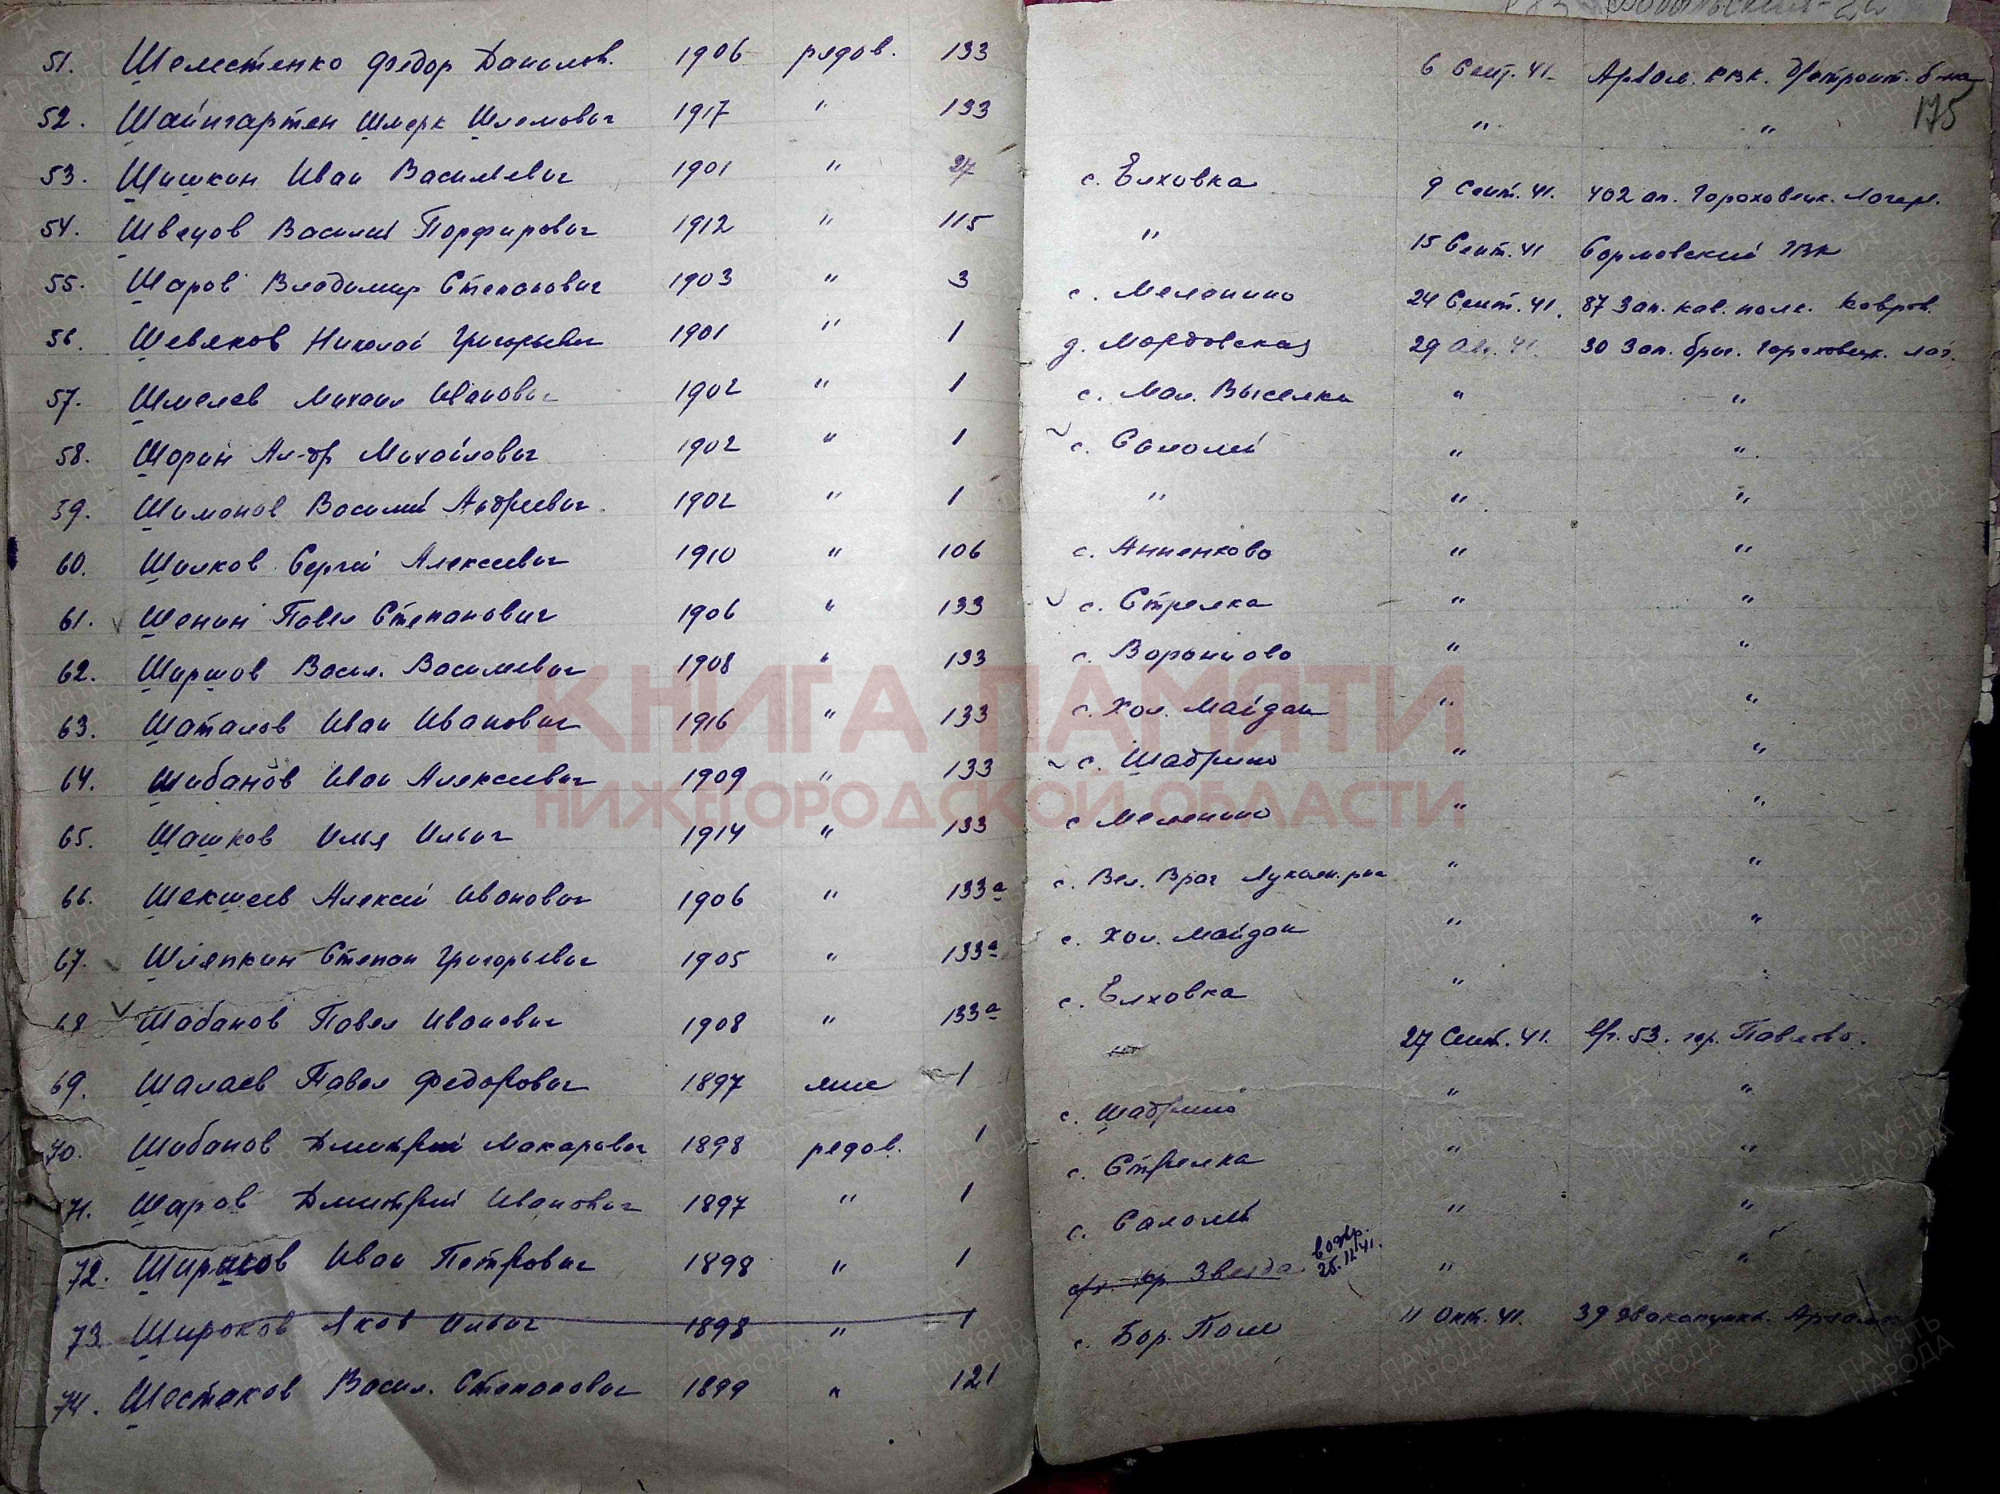 51. Шелестенко Федор Данилов. 1906 рядов. 133 6 Сент. 41. Арзам. РВК. Истроит. б-на
175
52. Шайнгартен Шмерк Шлемович 1917 " 133 " "
53. Шишкин Иван Васильевич 1901 " 27 с. Елховка 9 Сент. 41. 402 ап. Гороховецк. Лагерь.
54. Швецов Василий Порфирович 1912 " 115 " 15 Сент. 41 Сормовский РВК
55. Шаров Владимир Степанович 1903 " 3 с. Меленино 24 Сент. 41. 87 Зап. кав. полк. Ковров.
56. Шевяков Николай Григорьевич 1901 " 1 д. Мордовская 29 Авг. 41. 30 Зап. бриг. Гороховецк. лаг.
57. Шмелев Михаил Иванович 1902 " 1 с. Мал. Выселки " "
58. Шорин Ал-др Михайлович 1902 " 1 с. Салолей " "
59. Шимонов Василий Андреевич 1902 " 1 " " "
60. Шилков Сергей Алексеевич 1910 " 106 с. Анненково " "
61. Шенин Павел Степанович 1906 " 133 с. Стрелка " "
62. Ширшов Васил. Васильевич 1908 " 133 с. Воронцово " "
63. Шаталов Иван Иванович 1916 " 133 с. Хол. Майдан " "
64. Шибанов Иван Алексеевич 1909 " 133 с. Шадрино " "
65. Шашков Илья Ильич 1914 " 133 с. Меленино " "
66. Шекшеев Алексей Иванович 1906 " 133а с. Вел. Враг Лукоян. р-на " "
67. Шляпкин Степан Григорьевич 1905 " 133а с. Хол. Майдан " "
68 Шабанов Павел Иванович 1908 " 133а с. Елховка "
69. Шалаев Павел Федорович 1897 млк 1 27 Сент. 41. в/г. 53. гор. Павлово.
70. Шибанов Дмитрий Макарович 1898 рядов. 1 с. Шадрино " "
71. Шаров Дмитрий Иванович 1897 " 1 с. Стрелка " "
72. Ширшов Иван Петрович 1898 " 1 с. Салолей " "
73. Широков Яков Ильич 1898 " 1 Кр. Звезда возвр. 25.11.41. " "
74. Шестаков Васил. Степанович 1899 " 121 с. Бор. Поле 11 Окт. 41. 39 Эвакопункт. Арзамас
КНИГА ПАМЯТИ
НИЖЕГОРОДСКОЙ ОБЛАСТИ